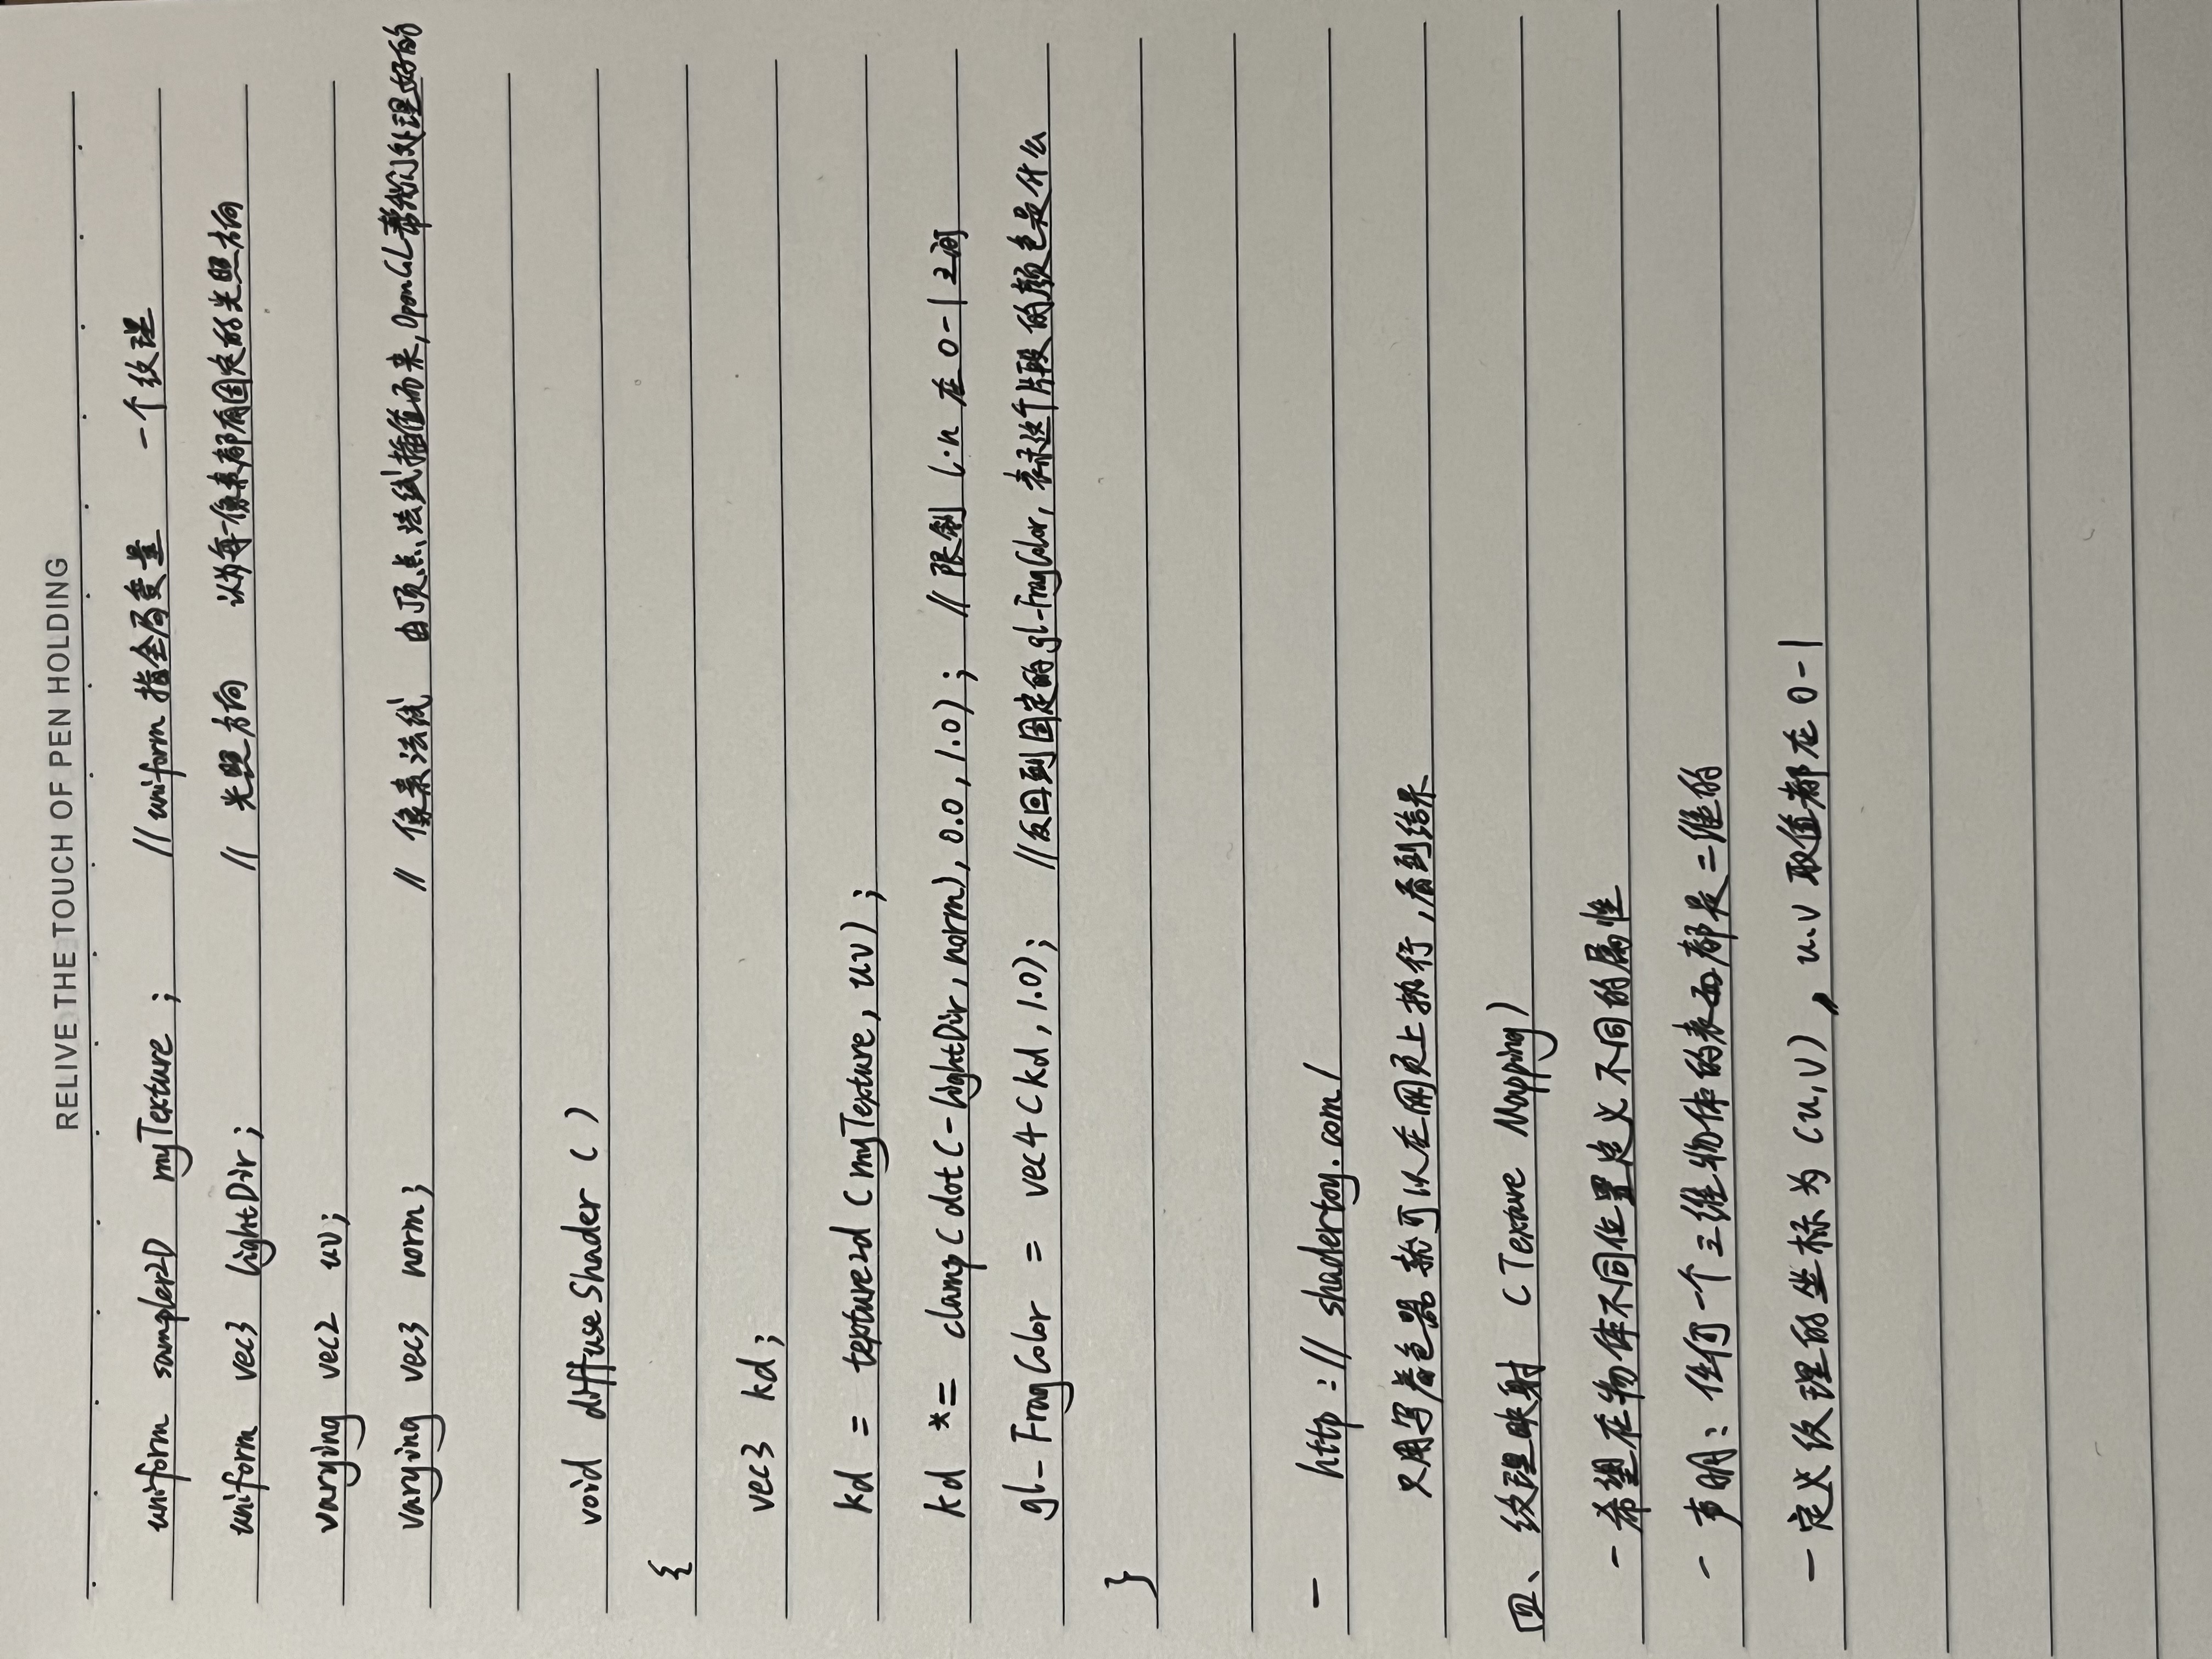 RELIVE THE TOUCH OF PEN HOLDING
uniform sampler2D myTexture ; //uniform 指全局变量 一个纹理
uniform vec3 lightDir ; // 光照方向 认为每一像素都有固定的光照方向
varying vec2 uv;
varying vec3 norm; // 像素法线 由顶点法线插值而来,OpenGL帮我们处理好的
void diffuseShader ( )
{
vec3 kd ;
kd = texture2d (myTexture, uv) ;
kd *= clamp( dot(-lightDir, norm), 0.0 , 1.0) ; // 限制 l·n 在 0-1 之间
gl_FragColor = vec4(kd , 1.0); //返回到固定的gl_FragColor, 表示这个片段的颜色是什么
}
— http :// shadertoy.com/
只用写着色器就可以在网页上执行,看到结果
四、纹理映射 (Texture Mapping)
- 希望在物体不同位置定义不同的属性
- 声明: 任何一个三维物体的表面都是二维的
- 定义纹理的坐标为 (u,v) , u.v 取值都在 0-1